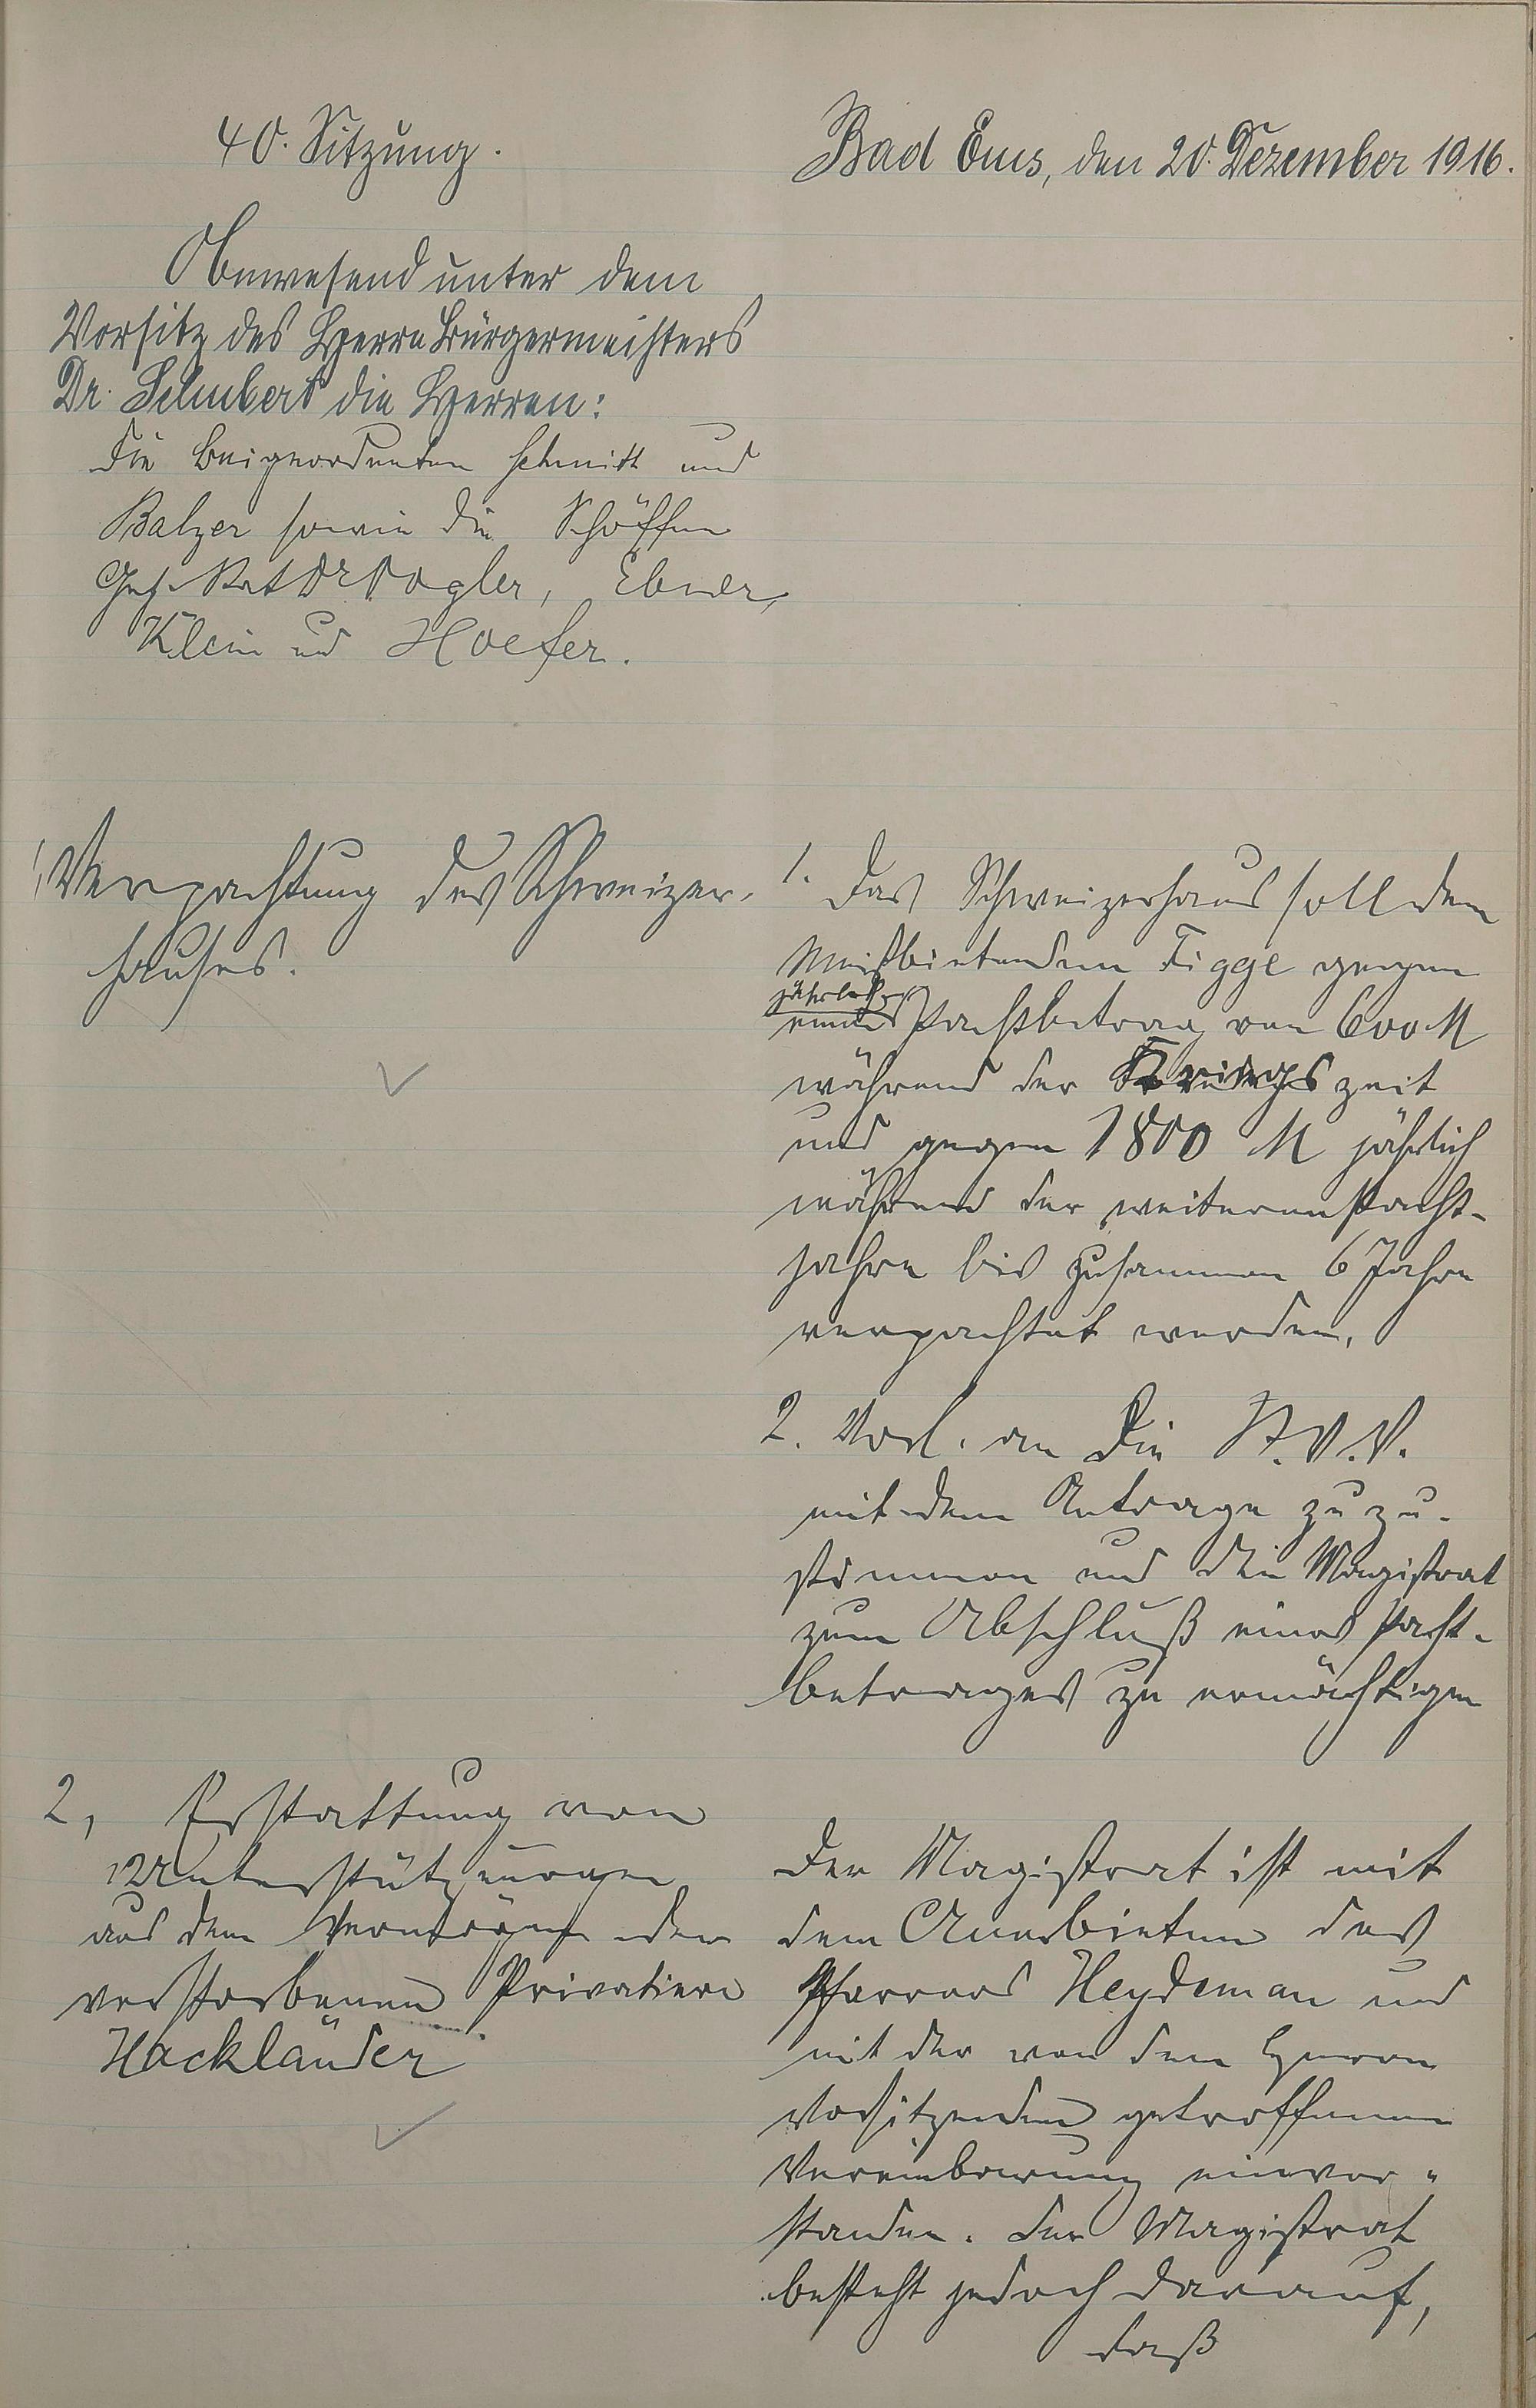 40. Sitzung.
Bad Ems, den 20. Dezember 1916.
Anwesend unter dem
Vorsitz des Herrn Bürgermeisters
Dr. Schubert die Herren:
die Beigeordneten Schmitt und
Balzer sowie die Schöffen
Geh. Rat Dr Vogler, Ebner,
Klein und Hoefer.
1, Verpachtung des Schweizer-
hauses.
1. Das Schweizerhaus soll dem
Meistbietenden Figge gegen
jährlich
einen Pachtbetrag von 600 M
während der Kriegszeit
und gegen 1800 M jährlich
während der weiteren Pacht-
jahre bis zusammen 6 Jahre
verpachtet werden.
2. Vorl. an die St. V. V.
mit dem Antrage zuzu-
stimmen und den Magistrat
zum Abschluß eines Pacht-
betrages zu ermächtigen
2, Erstattung von
Unterstützungen
aus dem Vermögen der
verstorbenen Privatiere
Hackländer
Der Magistrat ist mit
dem Anerbieten des
Pfarrers Heydeman und
mit der von dem Herrn
Vorsitzenden getroffenen
Vereinbarung einver-
standen. Der Magistrat
besteht jedoch darauf,
daß